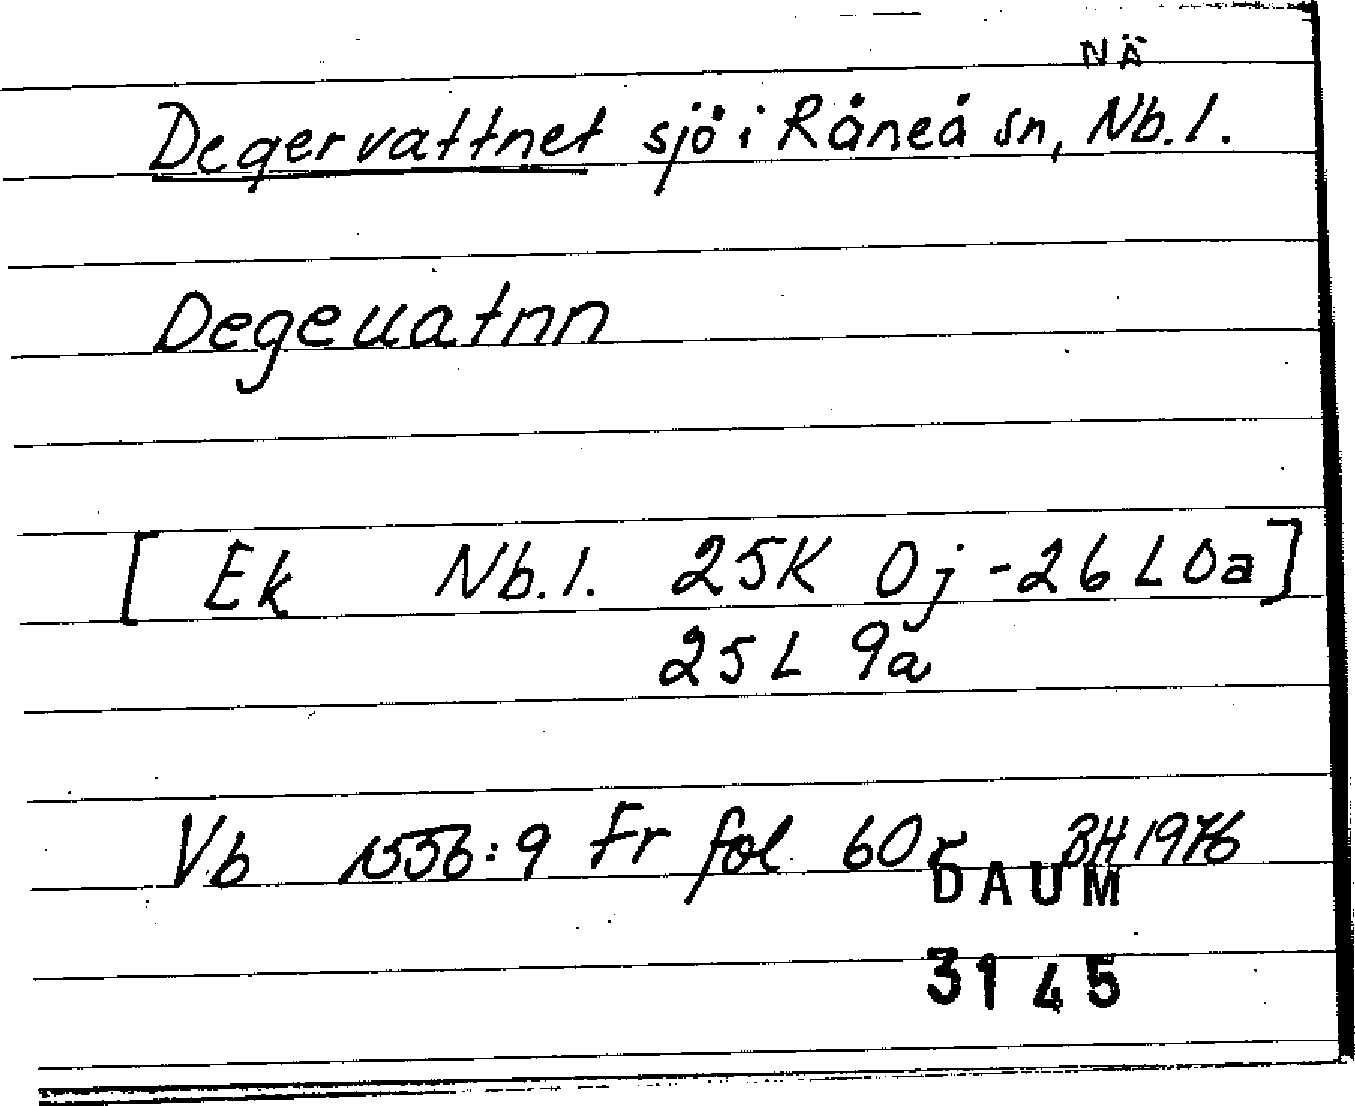 NÄ
Degervattnet sjö i Råneå sn, Nb.l.
Degeuatnn
[ Ek Nb.l. 25K 0j - 26 L 0a ]
25 L 9a
Vb 1556:9 Fr fol 60r BH 1976
DAUM
3145